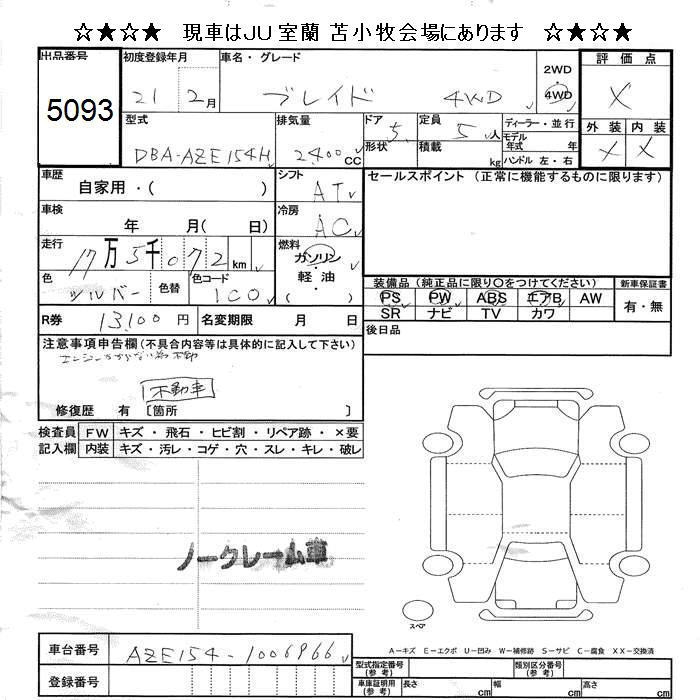 ☆★☆★ 現車はJU室蘭 苫小牧会場にあります ☆★☆★
出品番号 初度登録年月 車名・グレード 2WD 評価点
5093 21 2月 ブレイド 4WD 4WD X
型式 排気量 ドア 5 定員 5人 ディーラー・並行 外装 内装
DBA-AZE154H 2400cc 形状 積載 kg モデル年式 年 X X
ハンドル 左・右
車歴 自家用・( ) シフト AT セールスポイント (正常に機能するものに限ります)
車検 年 月( 日) 冷房 AC
走行 17万5千072km 燃料 ガソリン・軽・油( )
色 シルバー 色替 色コード 1C0 装備品 (純正品に限り○をつけてください) 新車保証書
PS PW ABS エアB AW 有・無
R券 13,100円 名変期限 月 日 SR ナビ TV カワ
注意事項申告欄 (不具合内容等は具体的に記入して下さい) 後日品
エンジンかからない為不動
不動車
修復歴 有 [箇所 ]
検査員 FW キズ・飛石・ヒビ割・リペア跡・×要
記入欄 内装 キズ・汚レ・コゲ・穴・スレ・キレ・破レ
ノークレーム車
スペア
A-キズ E-エクボ U-凹み W-補修跡 S-サビ C-腐食 XX-交換済
車台番号 AZE154-1006966 型式指定番号 (参考) 類別区分番号 (参考)
登録番号 車庫証明用 (参考) 長さ cm 幅 cm 高さ cm